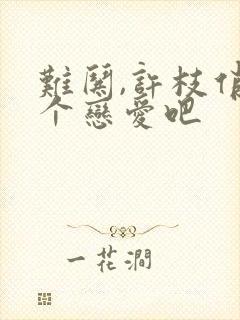 難鬩,許枝俏
个戀愛吧
一花澗